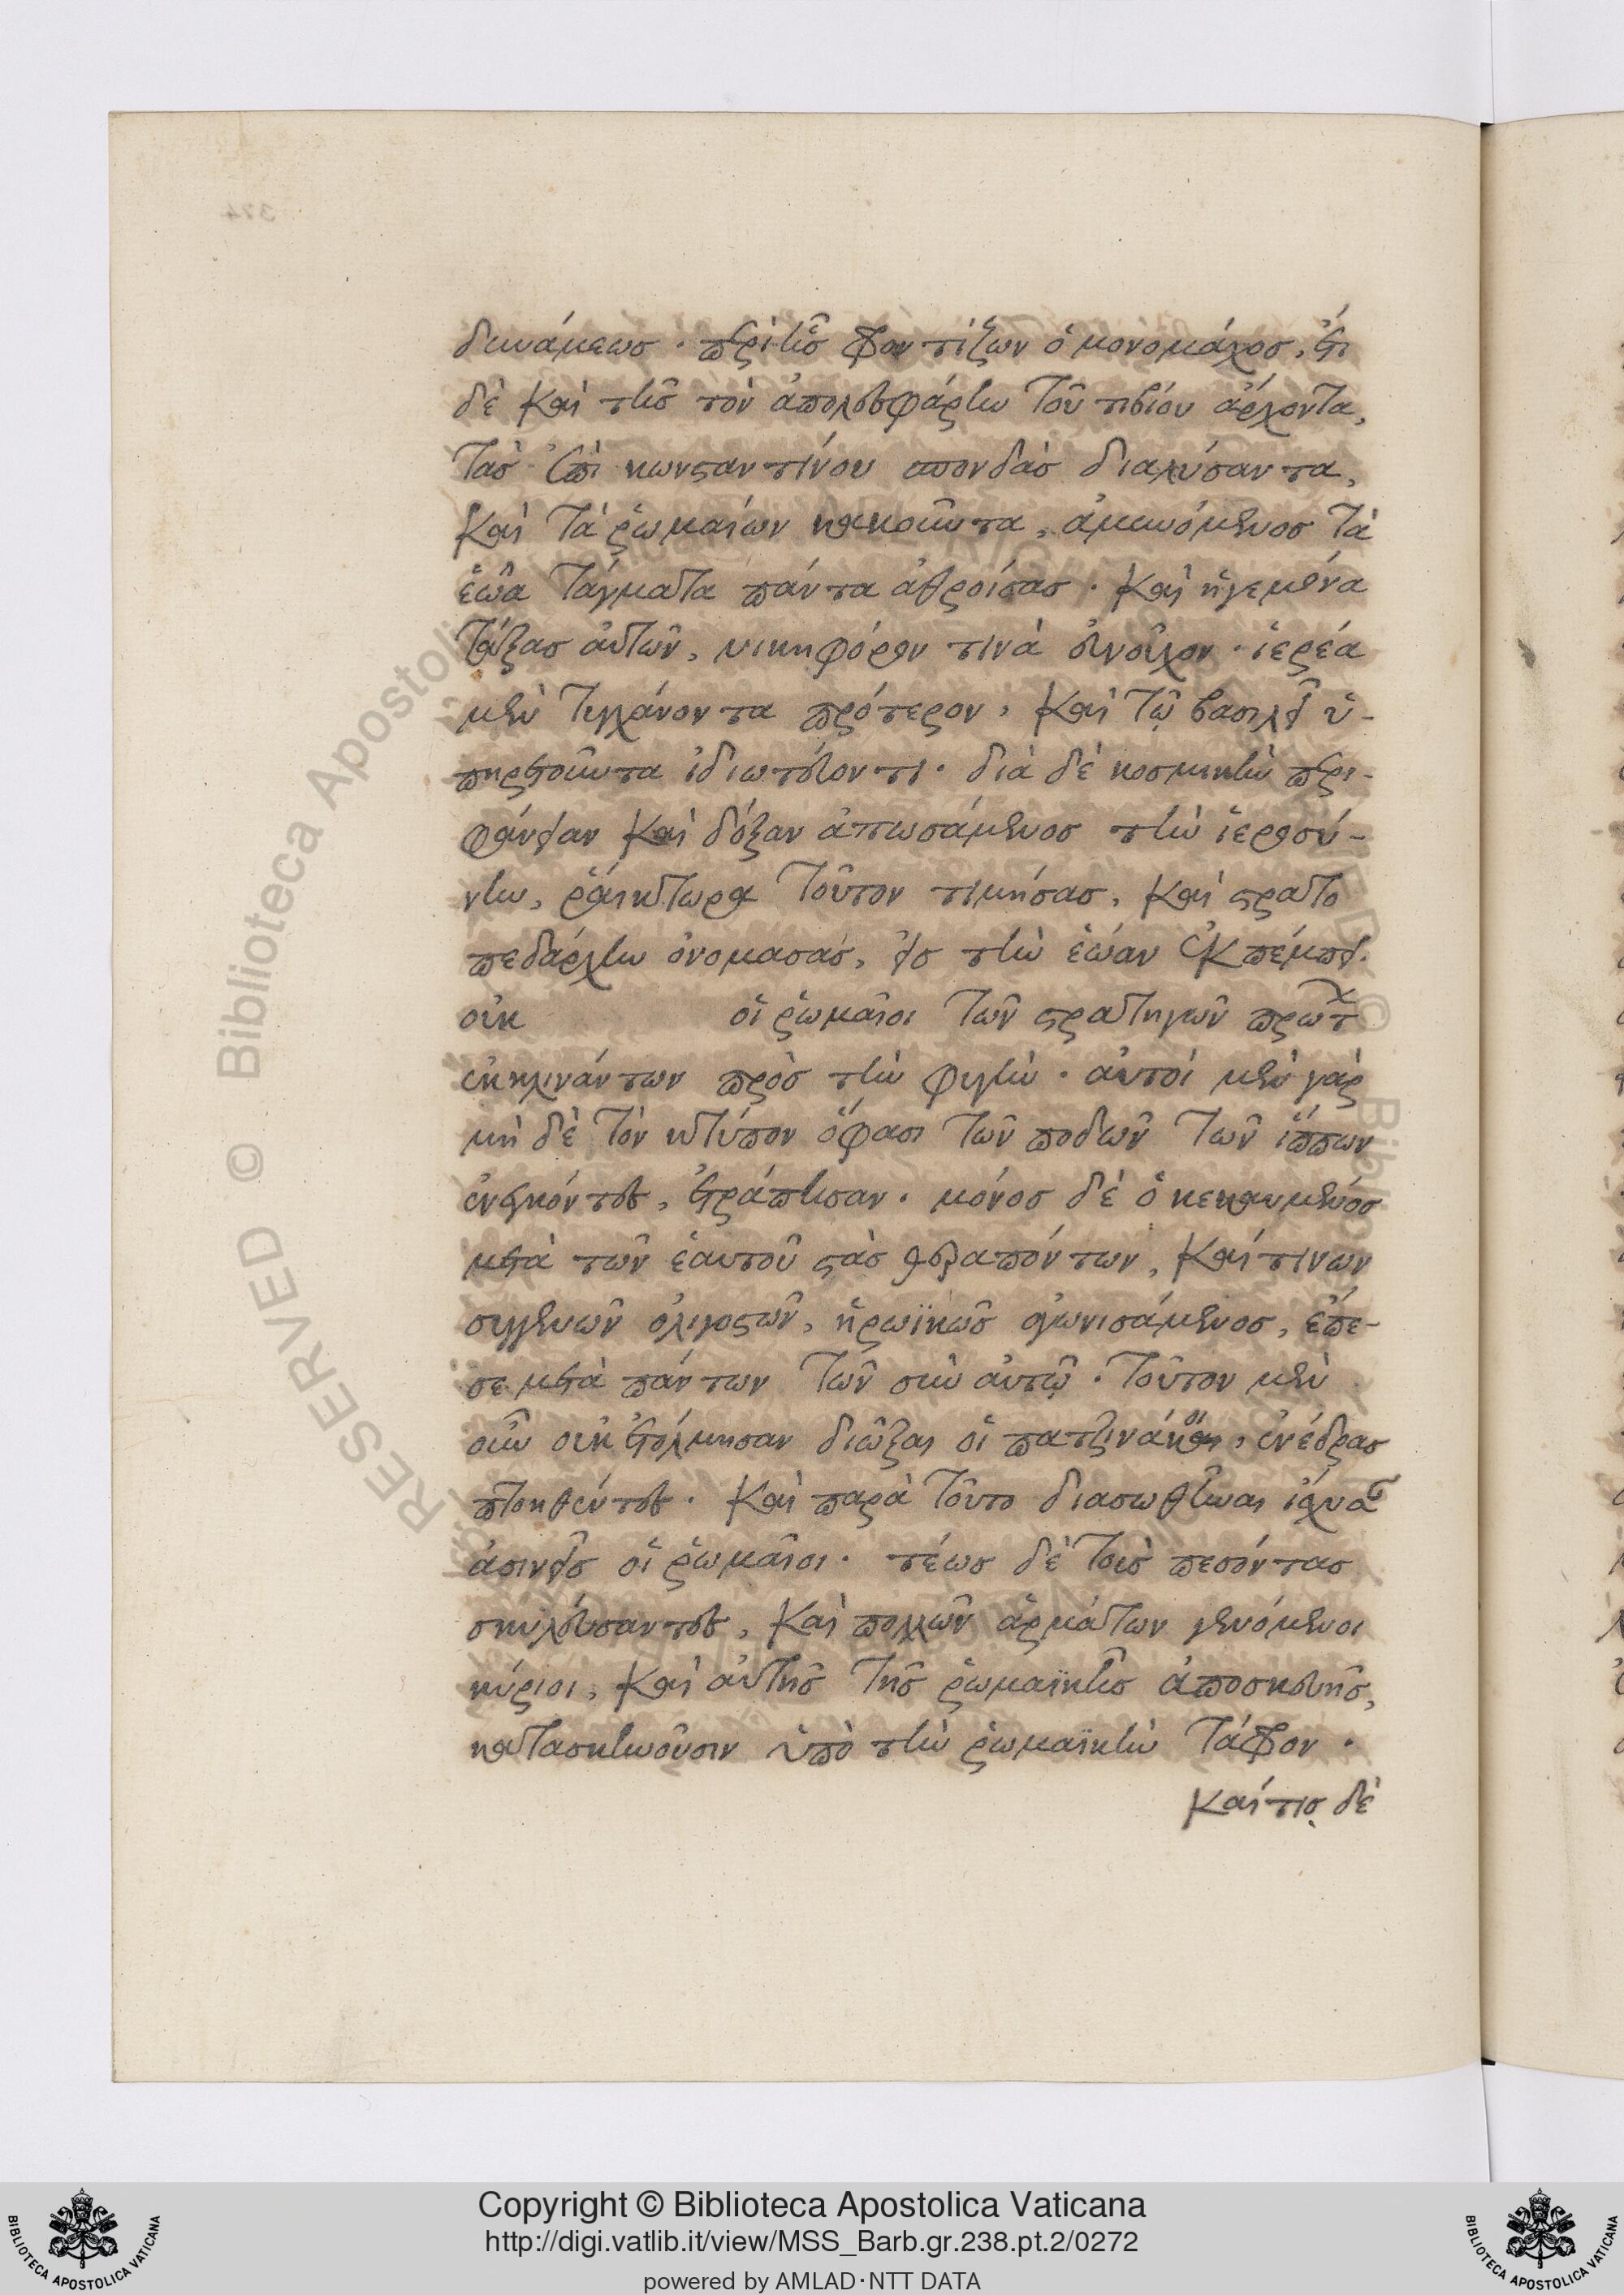 δυνάμεως · περὶ τῆς φροντίζων ὁ μονομάχος, ἔτι
δὲ καὶ τῆς τὸν ἀπολεσφάρην τοῦ τιβίου ἄρχοντα,
τὰς ἐπὶ κωνσταντίνου σπονδὰς διαλύσαντα,
καὶ τὰ ῥωμαίων κακοῦντα, ἀμυνόμενος τὰ
ἑῶα τάγματα πάντα ἀθροίσας · καὶ ἡγεμόνα
τάξας αὐτῶν, νικηφόρον τινὰ εὐνοῦχον · ἱερέα
μὲν τυγχάνοντα πρότερον, καὶ τῷ βασιλεῖ ὑ-
πηρετοῦντα ἰδιωτεύοντι · διὰ δὲ κοσμικὴν περι-
φάνειαν καὶ δόξαν ἀπωσάμενος τὴν ἱερωσύ-
νην, ῥαίκτωρα τοῦτον τιμήσας, καὶ στρατο
πεδάρχην ὀνομασας, εἰς τὴν ἑώαν ἐκπέμπει.
οὐκ οἱ ῥωμαῖοι τῶν στρατηγῶν πρώτ
ἐκκλινάντων πρὸς τὴν φυγὴν · αὐτοὶ μὲν γὰρ
μὴ δὲ τὸν κτύπον ὄφασι τῶν ποδῶν τῶν ἵππων
ἐνεγκόντες, ἐτράπησαν · μόνος δὲ ὁ κεκαυμένος
μετὰ τῶν ἑαυτοῦ στὰς θεραπόντων, καί τινων
συγγενῶν ὀλιγοστῶν, ἡρωϊκῶς ἀγωνισάμενος, ἔπε-
σε μετὰ πάντων τῶν σὺν αὐτῷ · τοῦτον μὲν
οὖν οὐκ ἐτόλμησαν διῶξαι οἱ πατζινάκοι, ἐνέδρας
πτοηθέντες · καὶ παρὰ τοῦτο διασωθῆναι ἴσχυσα
ἀσινεῖς οἱ ῥωμαῖοι · τέως δὲ τοὺς πεσόντας
σκυλεύσαντες, καὶ πολλῶν ἁρμάτων γενόμενοι
κύριοι, καὶ αὐτῆς τῆς ῥωμαϊκῆς ἀποσκευῆς,
κατασκηνοῦσιν ὑπὸ τὴν ῥωμαϊκὴν τάφρον ·
Καί τις δὲ
Copyright © Biblioteca Apostolica Vaticana
http://digi.vatlib.it/view/MSS_Barb.gr.238.pt.2/0272
powered by AMLAD·NTT DATA